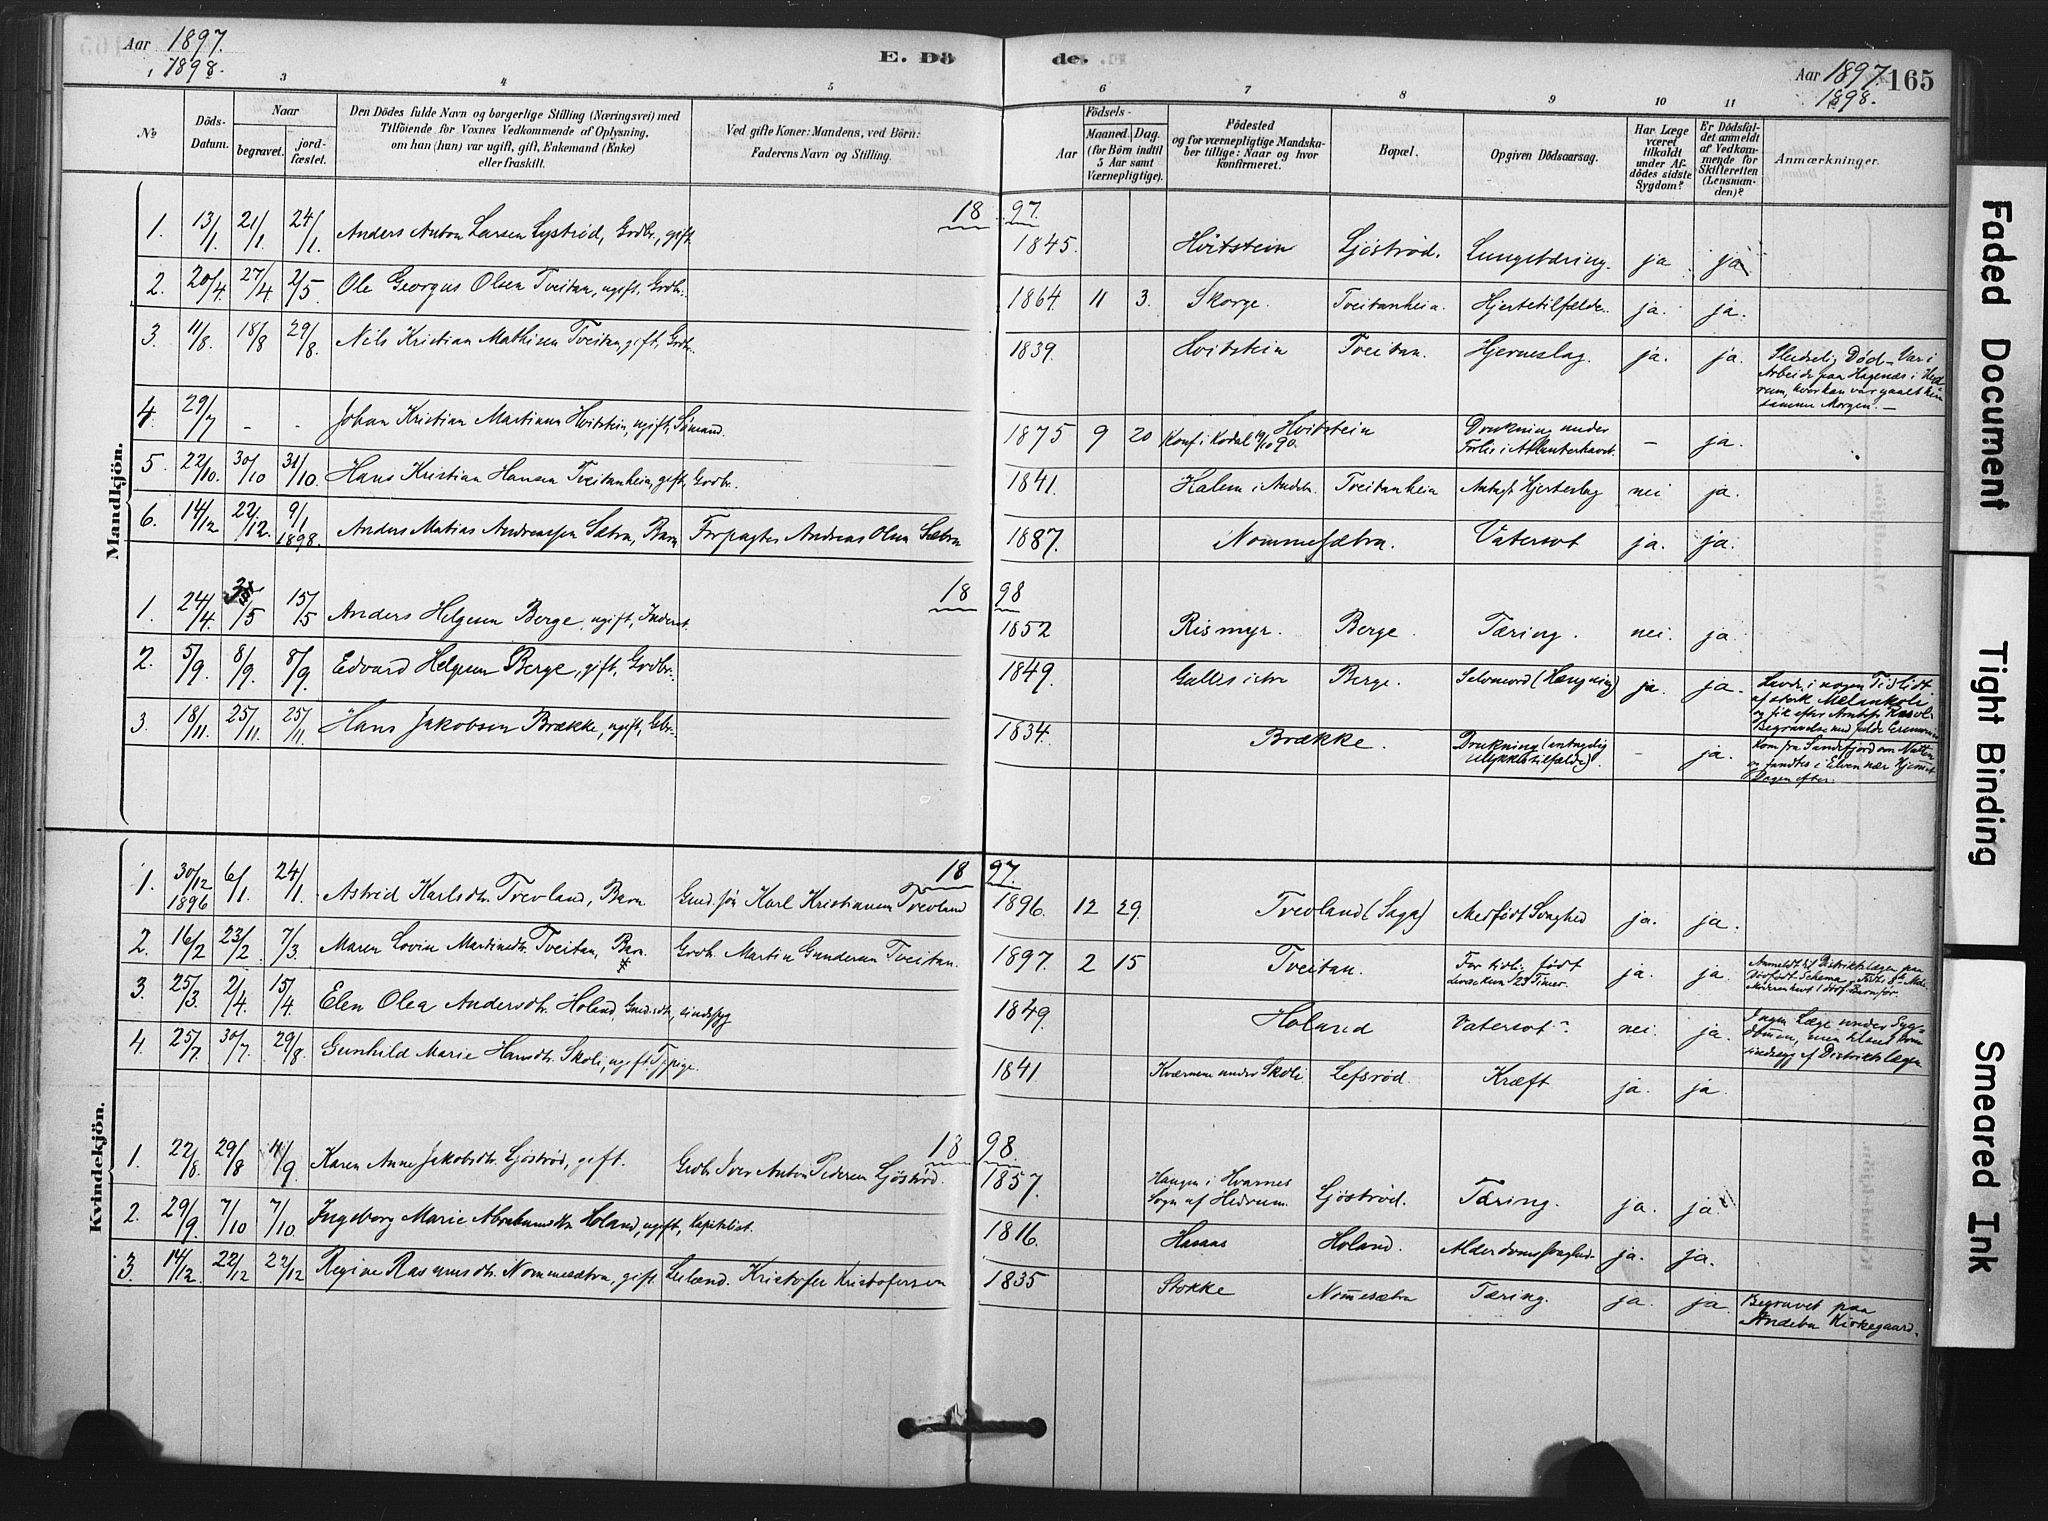 Aar 1897.
1898.
E. Dö
de.
Aar 1897.
1898.
165
3 4 5 6 7 8 9 10 11
№
Döds-Datum.
Naar
begravet.
jord-fæstet.
Den Dödes fulde Navn og borgerlige Stilling (Næringsvei) med
Tilföiende for Voxnes Vedkommende af Oplysning,
om han (hun) var ugift, gift, Enkemand (Enke)
eller fraskilt.
Ved gifte Koner: Mandens, ved Börn:
Faderens Navn og Stilling.
Födsels-
Aar
Maaned.
Dag.
(for Börn indtil
5 Aar samt
Værnepligtige).
Födested
og for værnepligtige Mandska-
ber tillige: Naar og hvor
konfirmeret.
Bopæl.
Opgiven Dödsaarsag.
Har Læge
været
tilkaldt
under Af-
dödes sidste
Sygdom?
Er Dödsfal-
det anmeldt
af Vedkom-
mende for
Skifteretten
(Lensman-
den)?
Anmærkninger.
Mandkjön.
18 97.
1. 13/1. 21/1. 24/1. Anders Anton Larsen Lystrød, Grdbr., gift. 1845. Hvitstein Ljøstrød. Lungetæring. ja ja
2. 20/4. 27/4 2/5. Ole Georgus Olsen Tveitan, ugift, Grdbr. 1864. 11 3. Skorge. Tveitanheia. Hjertetilfælde. ja. ja.
3. 11/8. 18/8 29/8. Nils Kristian Mathisen Tveitan, gift, Grdbr. 1839. Hvitstein Tveitan. Hjerneslag. ja. ja. Pludselig Død - Var i
Arbeide paa Hagenæs i Hed-
rum, hvor han var gaaet hen
samme Morgen. -
4. 29/7 - - Johan Kristian Martinsen Hvitstein, ugift, Sømand. 1875 9 20 Hvitstein
Konf. i Kodal 12/10 90. Drukning under
Forlis i Atlanterhavet. - ja.
5. 22/10. 30/10 31/10. Hans Kristian Hansen Tveitanheia, gift, Grdbr. 1841. Halum i Andebu. Tveitanheia Antagl. Hjerteslag nei ja.
6. 14/12. 22/12. 9/1 1898. Anders Matias Andreassen Sætra, Barn Forpagter Andreas Olsen Sætra 1887. Nommesætra. Vatersot ja. ja.
18 98
1. 24/4. /5 15/5 Anders Helgesen Berge, ugift, Inderst. 1852 Rismyr. Berge. Tæring. nei. ja.
2. 5/9. 8/9. 8/9. Edvard Helgesen Berge, gift, Grdbr. 1849. Berge. Selvmord (Hængning) ja. ja. Levde i nogen Tid lidt
af sterk Melankoli
og fik efter
Begravelse med fulde Ceremonier
3. 18/11. 25/11. 25/11. Hans Jakobsen Brække, ugift, Gbr. 1834. Brække. Drukning (antagelig
Ulykkestilfælde). - ja. Kom fra Sandefjord om Natten
og fandtes i Elven nær Hjemmet
Dagen efter.
Kvindekjön.
18 97.
1. 30/12 1896 6/1. 24/1. Astrid Karlsdtr. Trevland, Barn Gmd.søn Karl Kristiansen Trevland 1896. 12 29. Trevland (Saga) Medfødt Svaghed ja. ja.
2. 16/2 23/2 7/3. Maren Lovise Martinsdtr. Tveitan, Barn. Grdbr. Martin Gundersen Tveitan. 1897. 2 15 Tveitan. For tidlig født
Levde kun 23 Timer. ja. ja. Anmeldt af Distriktslægen paa
3. 25/3. 2/4. 15/4. Elen Olea Andersdtr. Holand, Gmd.dtr., sindssyg 1849. Holand Vatersot nei ja. Ingen Læge under Syg-
dommen, men
sindssyg af Distriktslægen
4. 25/7. 30/7. 29/8. Gunhild Marie Hansdtr. Skoli, ugift Tj.pige. 1841 Kværnene under Skoli Lefsrød. Kræft ja. ja.
18 98.
1. 22/8. 29/8 4/9. Karen Anne Jakobsdtr. Ljøstrød, gift. Grdbr. Iver Anton Pedersen Ljøstrød. 1857. Haugen i Hvarnes
Sogn af Hedrum. Ljøstrød. Tæring. ja. ja.
2. 29/9. 7/10 7/10. Ingeborg Marie Abrahamsdtr. Holand, ugift, Kapitalist. 1816. Hasaas Holand. Alderdomssvaghed. ja. ja.
3. 14/12. 22/12 22/12 Regine Rasmusdtr. Nommesætra, gift. Leilænd. Kristofer Kristofersen 1835 Stokke Nommesætra Tæring. ja. ja. Begravet paa
Andebu Kirkegaard.
Faded Document
Tight Binding
Smeared Ink